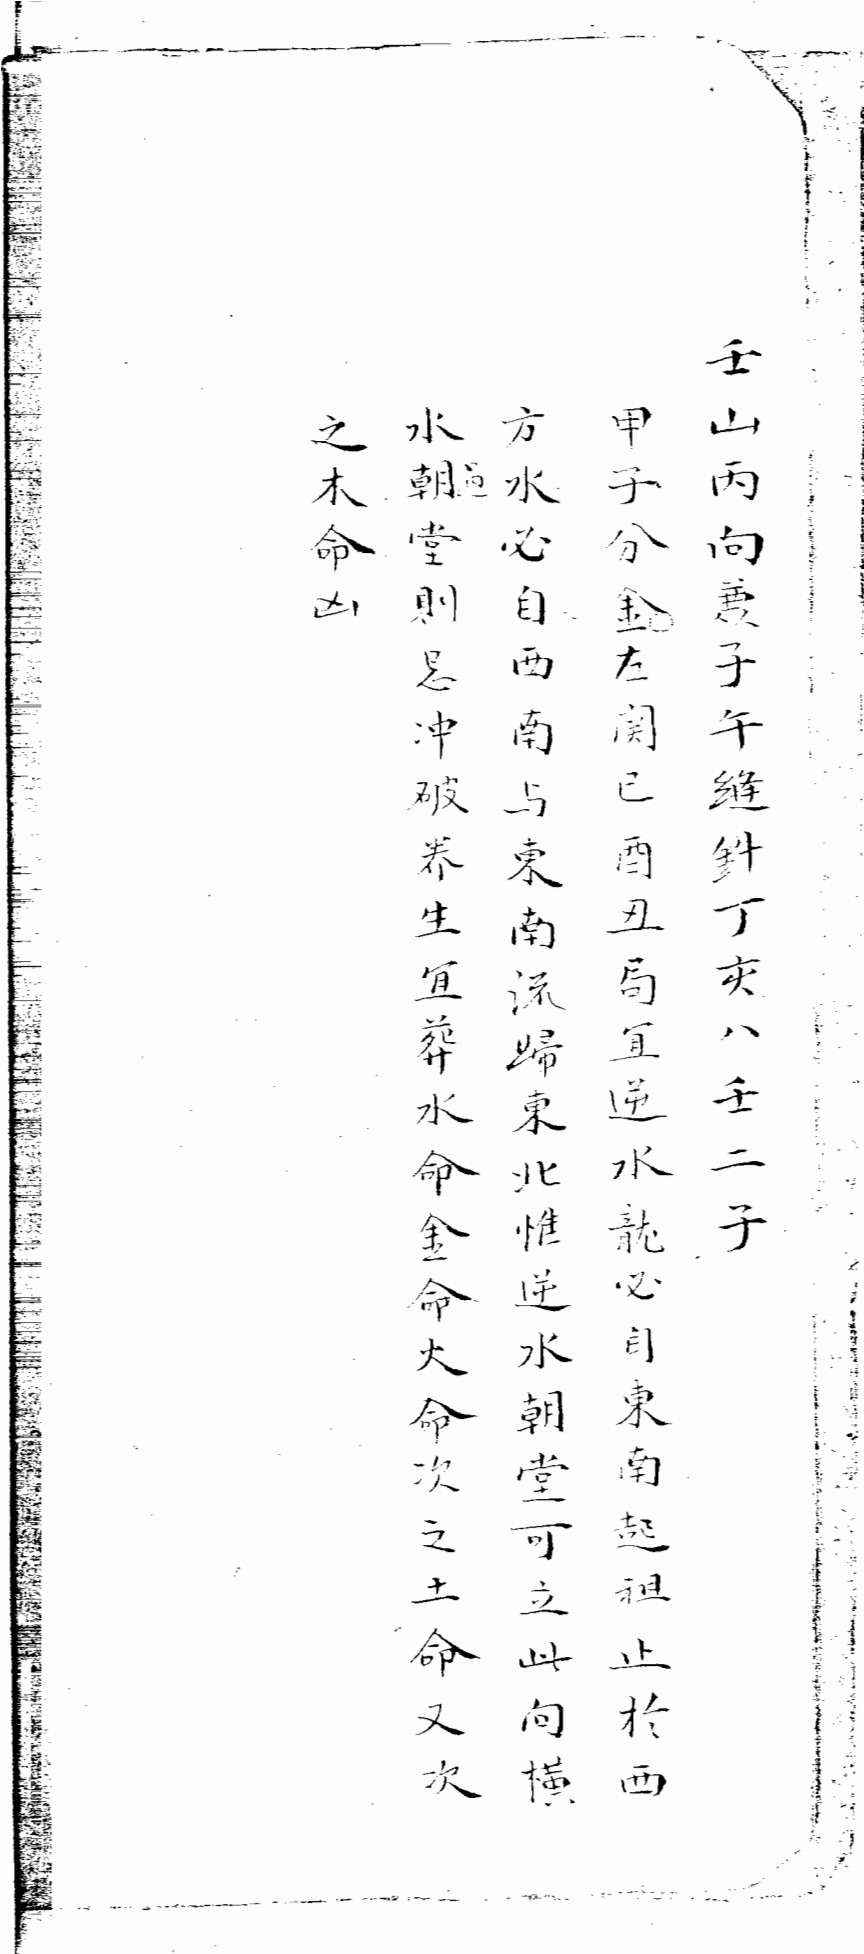 壬山丙向兼子午縫針丁亥八壬二子
甲子分金左関巳酉丑局宜逆水龍必自東南起祖止於西
方水必自西南与東南流歸東北惟逆水朝堂可立此向橫
水朝堂則忌冲破养生宜葬水命金命火命次之土命又次
之木命凶